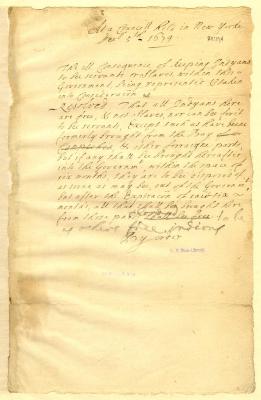 At a Councell held in New Yorke
Dec 5th 1679
The ill Consequence of keeping Indyans
to be servants or slaves within this
Government, being represented & taken
into Consideration
Resolved That all Indyans here
are free, & not slaves, nor can be forct
to be servants, Except such as have been
formerly brought from the Bay
& other forreigne parts,
but if any shall be brought hereafter
into the Government within the space of
six months, they are to be disposed of
as soone as may be, out of the Governmt
but after the Expiracon of said six
months, all that shall be brought here
from those parts to be
as other free Indians
By order